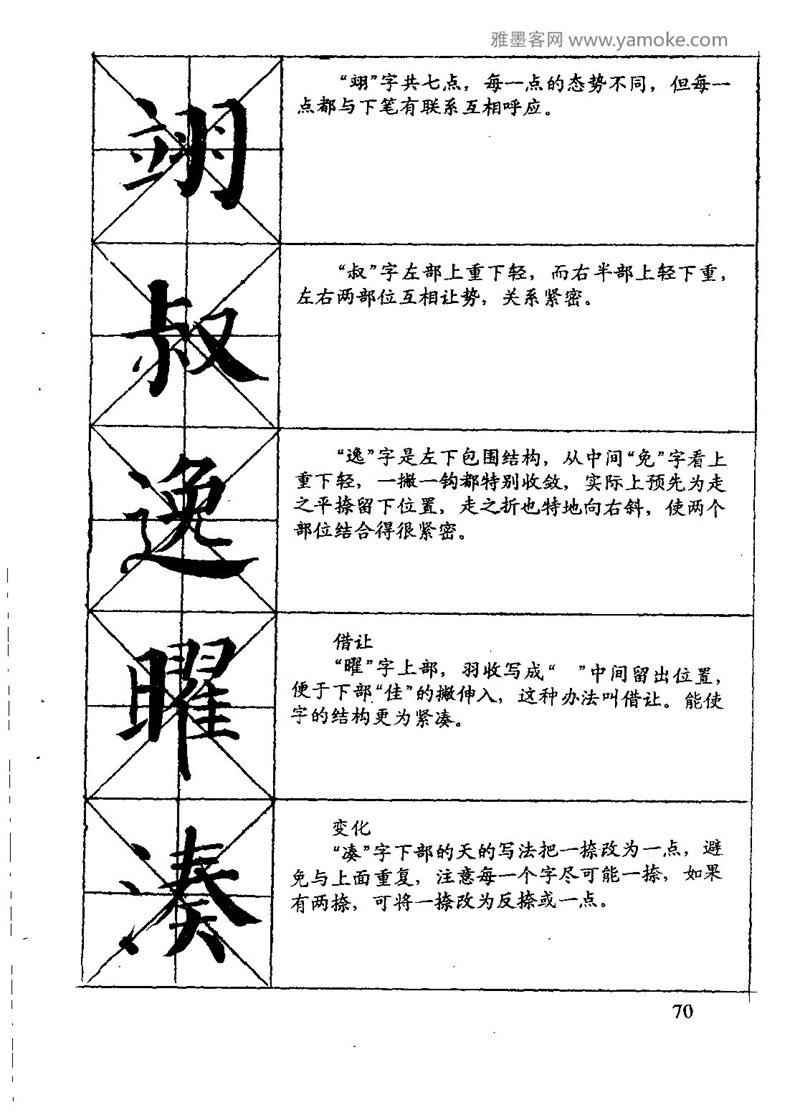 雅墨客网 www.yamoke.com
翊
“翊”字共七点，每一点的态势不同，但每一
点都与下笔有联系互相呼应。
叔
“叔”字左部上重下轻，而右半部上轻下重，
左右两部位互相让势，关系紧密。
逸
“逸”字是左下包围结构，从中间“免”字看上
重下轻，一撇一钩都特别收敛，实际上预先为走
之平捺留下位置，走之折也特地向右斜，使两个
部位结合得很紧密。
曜
借让
“曜”字上部，羽收写成“ ”中间留出位置，
便于下部“隹”的撇伸入，这种办法叫借让。能使
字的结构更为紧凑。
凑
变化
“凑”字下部的天的写法把一捺改为一点，避
免与上面重复，注意每一个字尽可能一捺，如果
有两捺，可将一捺改为反捺或一点。
70